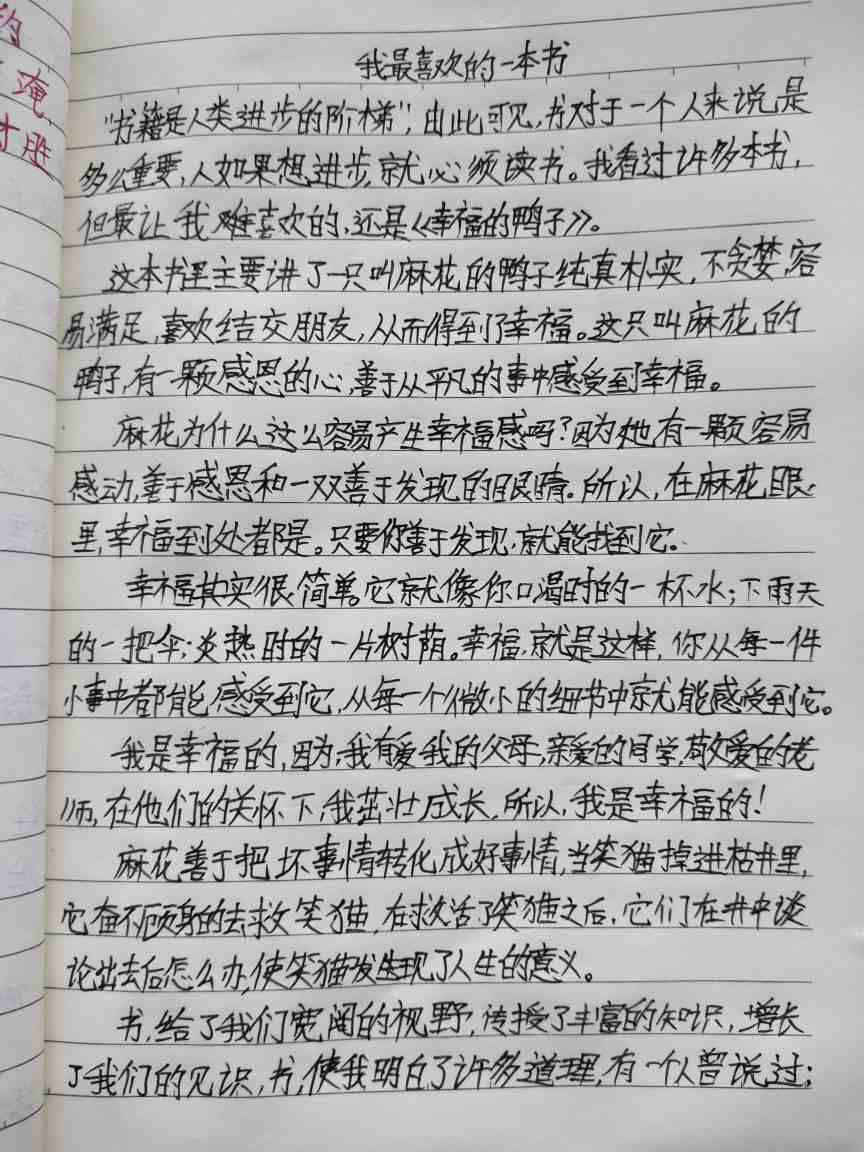 我最喜欢的一本书
"书籍是人类进步的阶梯"，由此可见，书对于一个人来说是
多么重要，人如果想进步，就必须读书。我看过许多本书，
但最让我难喜欢的，还是《幸福的鸭子》。
这本书里主要讲了一只叫麻花的鸭子纯真朴实，不贪婪，容
易满足，喜欢结交朋友，从而得到了幸福。这只叫麻花的
鸭子，有一颗感恩的心，善于从平凡的事中感受到幸福。
麻花为什么这么容易产生幸福感吗？因为她有一颗容易
感动，善于感恩和一双善于发现的眼睛。所以，在麻花眼
里，幸福到处都是。只要你善于发现，就能找到它。
幸福其实很简单。它就像你口渴时的一杯水；下雨天
的一把伞；炎热时的一片树荫。幸福，就是这样，你从每一件
小事中都能感受到它，从每一个微小的细节中就能感受到它。
我是幸福的，因为，我有爱我的父母，亲爱的同学，敬爱的老
师，在他们的关怀下，我茁壮成长，所以，我是幸福的！
麻花善于把坏事情转化成好事情，当笑猫掉进枯井里，
它奋不顾身的去救笑猫，在救活了笑猫之后，它们在井中谈
论出去后怎么办，使笑猫发生现了人生的意义。
书，给了我们宽阔的视野，传授了丰富的知识，增长
了我们的见识，书，使我明白了许多道理，有一个人曾说过；